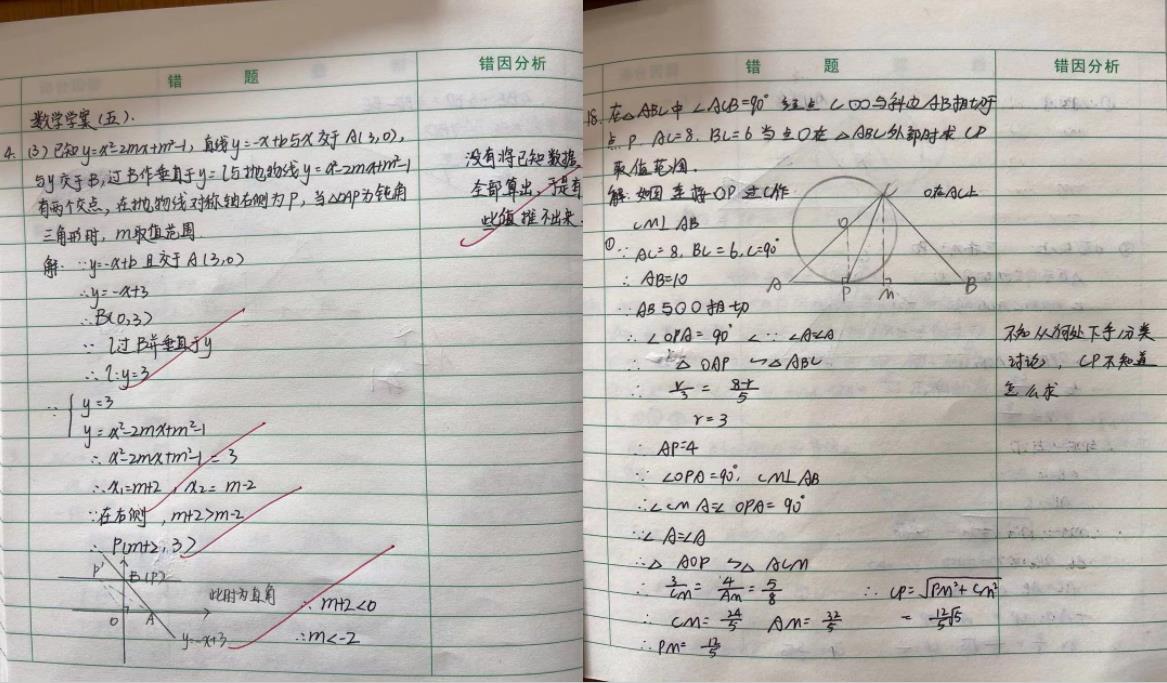 错题
错因分析
数学学案(五).
4. (3)已知y=x²-2mx+m²-1, 直线y=-x+b与x交于A(3,0),
与y交于B,过B作垂直于y=l与抛物线y=x²-2mx+m²-1
有两个交点,在抛物线对称轴右侧为P,当△OAP为钝角
三角形时,m取值范围
没有将已知数据
全部算出,于是有
些值推不出来
解: ∵y=-x+b 且交于A(3,0)
∴y=-x+3
∴B(0,3)
∵l过B并垂直于y
∴l:y=3
∵{y=3
y=x²-2mx+m²-1
∴x²-2mx+m²-1=3
∴x₁=m+2, x₂=m-2
∵在右侧, m+2>m-2
∴P(m+2,3)
P' B(P)
O A
y=-x+3
此时为直角
∴m+2<0
∴m<-2
错题
错因分析
18. 在△ABC中∠ACB=90° C ⊙O与斜边AB相切于
点P. AC=8, BC=6当点O在△ABC外部时求CP
取值范围.
解: 如图连接OP过C作
CM⊥AB
C O在AC上
O
A P M B
① ∵AC=8, BC=6, C=90°
∴AB=10
∵AB与⊙O相切
∴∠OPA=90° ∠ ∵∠A=∠A
∴△OAP∽△ABC
∴r/3=(8-r)/5
r=3
∴AP=4
∵∠OPA=90°, CM⊥AB
∴∠CMA=∠OPA=90°
∵∠A=∠A
∴△AOP∽△ACM
∴3/CM=4/AM=5/8
∴CM=24/5 AM=32/5
∴PM=12/5
∴CP=√(PM²+CM²)
=12/5√5
不知从何处下手分类
讨论, CP不知道
怎么求